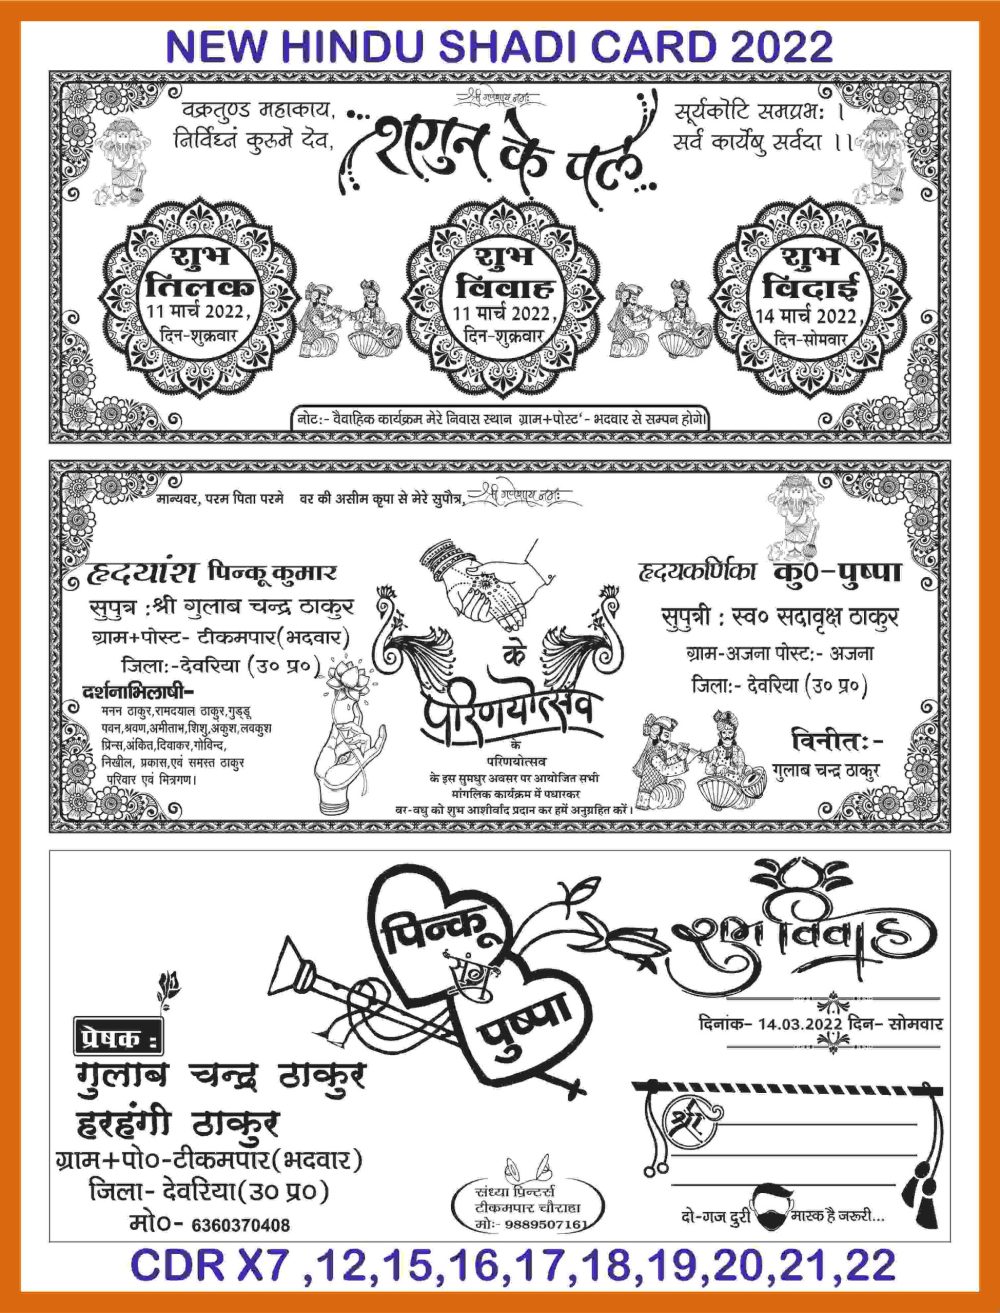 NEW HINDU SHADI CARD 2022
श्री गणेशाय नमः
वक्रतुण्ड महाकाय,
निर्विघ्नं कुरूमे देव,
शगुन के पल
सूर्यकोटि समप्रभः ।
सर्व कार्येषु सर्वदा ।।
शुभ
तिलक
11 मार्च 2022,
दिन-शुक्रवार
शुभ
विवाह
11 मार्च 2022,
दिन-शुक्रवार
शुभ
विदाई
14 मार्च 2022,
दिन-सोमवार
नोटः- वैवाहिक कार्यक्रम मेरे निवास स्थान ग्राम+पोस्ट‘- भदवार से सम्पन होगे।
मान्यवर, परम पिता परमे वर की असीम कृपा से मेरे सुपौत्र,
श्री गणेशाय नमः
हृदयांश पिन्कू कुमार
सुपुत्र :श्री गुलाब चन्द्र ठाकुर
ग्राम+पोस्ट- टीकमपार(भदवार)
जिलाः-देवरिया (उ० प्र०)
दर्शनाभिलाषी-
मनन ठाकुर,रामदयाल ठाकुर,गुड्डू
पवन,श्रवण,अमीताभ,शिशु,अंकुश,लवकुश
प्रिन्स,अंकित,दिवाकर,गोविन्द,
निखील, प्रकास,एवं समस्त ठाकुर
परिवार एवं मित्रगण।
के
परिणयोत्सव
के
परिणयोत्सव
के इस सुमधुर अवसर पर आयोजित सभी
मांगलिक कार्यक्रम में पधारकर
वर-वधु को शुभ आशीर्वाद प्रदान कर हमें अनुग्रहित करें ।
हृदयकर्णिका कु०-पुष्पा
सुपुत्री : स्व० सदावृक्ष ठाकुर
ग्राम-अजना पोस्टः- अजना
जिलाः- देवरिया (उ० प्र०)
विनीतः-
गुलाब चन्द्र ठाकुर
पिन्कू
संग
पुष्पा
शुभ विवाह
दिनांक- 14.03.2022 दिन- सोमवार
प्रेषक :
गुलाब चन्द्र ठाकुर
हरहंगी ठाकुर
ग्राम+पो०-टीकमपार(भदवार)
जिला- देवरिया(उ० प्र०)
मो०- 6360370408
संध्या प्रिन्टर्स
टीकमपार चौराहा
मोः- 9889507161
श्री
दो-गज दुरी मास्क है जरूरी...
CDR X7 ,12,15,16,17,18,19,20,21,22